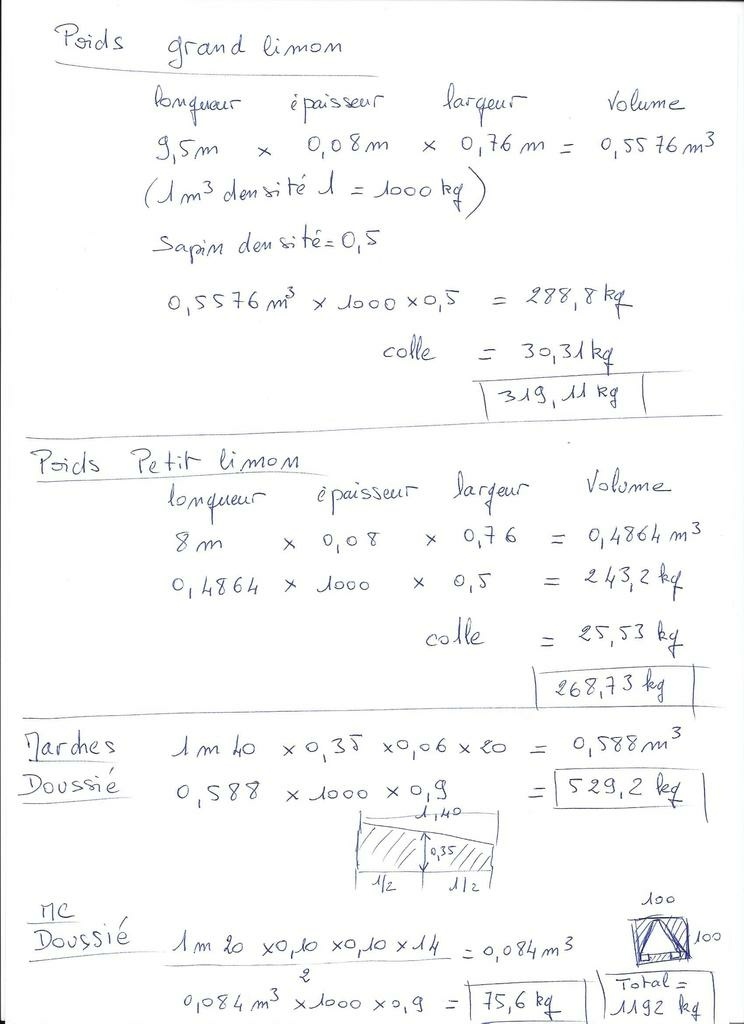 Poids grand limon
longueur épaisseur largeur volume
9,5m × 0,08m × 0,76m = 0,5576m³
(1m³ densité 1 = 1000 kg)
Sapin densité = 0,5
0,5576m³ × 1000 × 0,5 = 288,8kg
colle = 30,31kg
319,11 kg
Poids Petit limon
longueur épaisseur largeur Volume
8m × 0,08 × 0,76 = 0,4864m³
0,4864 × 1000 × 0,5 = 243,2kg
colle = 25,53 kg
268,73 kg
Marches 1m40 × 0,35 × 0,06 × 20 = 0,588m³
Doussié 0,588 × 1000 × 0,9 = 529,2 kg
1,40
0,35
1/2 1/2
MC 100
Doussié 1m20 × 0,10 × 0,10 × 14 = 0,084m³ 100
2
0,084m³ × 1000 × 0,9 = 75,6 kg
Total =
1192 kg